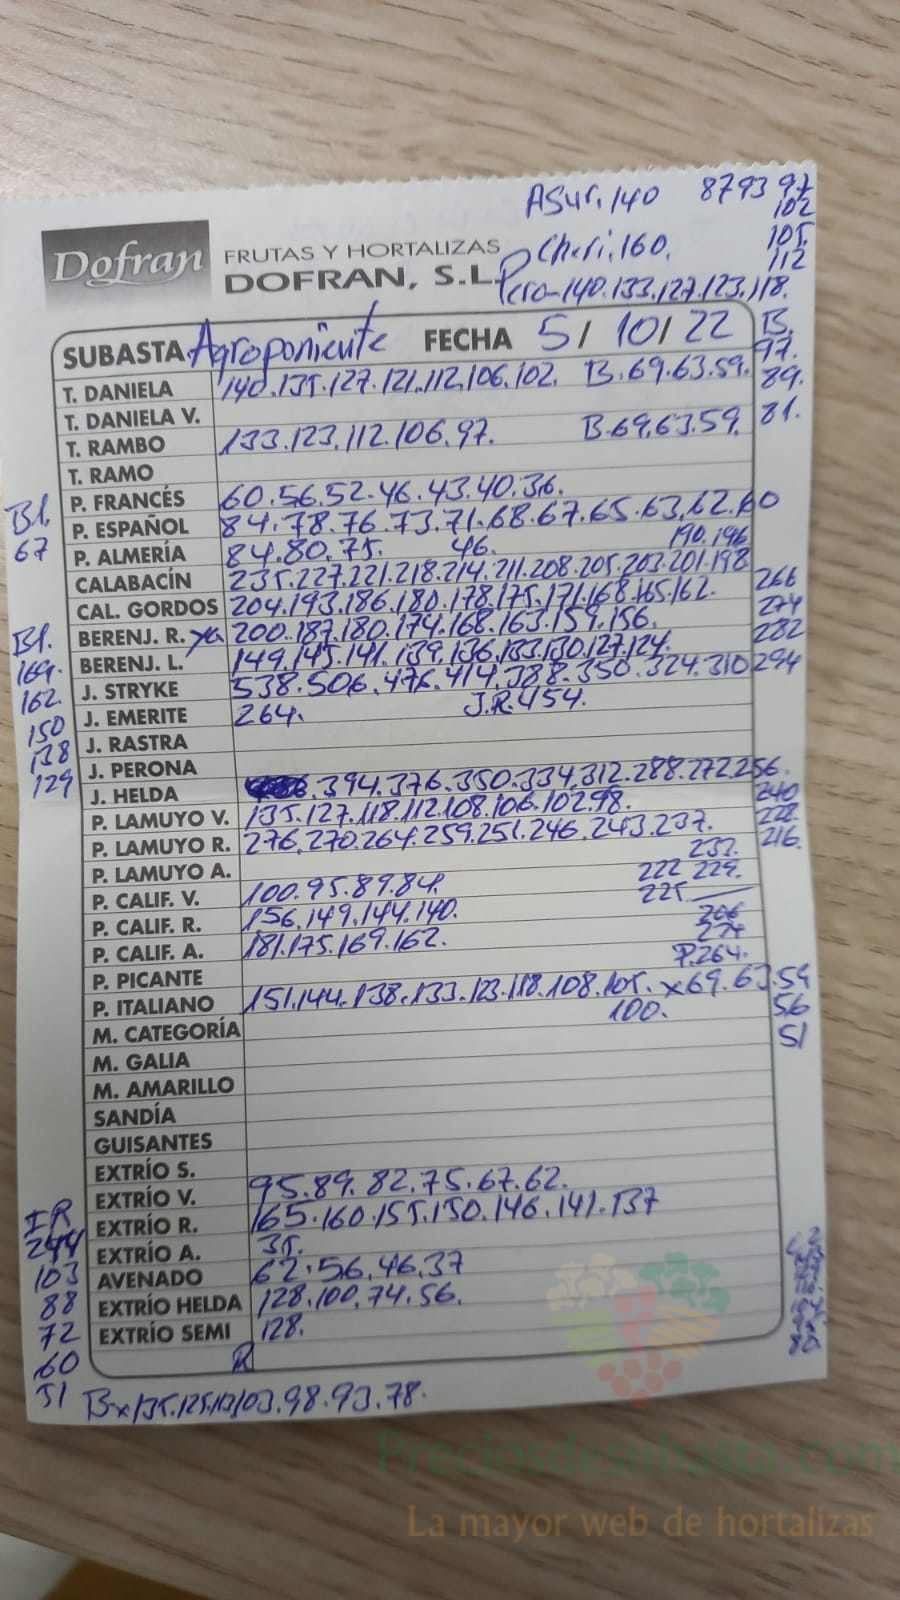 Asur. 140 879397
102
Cheri. 160. 105.
112
Pera-140.133.127.123.118.
Dofran FRUTAS Y HORTALIZAS
DOFRAN, S.L.
SUBASTA Agroponiente FECHA 5/10/22 B.
97.
T. DANIELA 140.135.127.121.112.106.102. B.69.63.59. 89.
T. DANIELA V. 81.
T. RAMBO 133.123.112.106.97. B.69.63.59.
T. RAMO
P. FRANCÉS 60.56.52.46.43.40.36.
B1. P. ESPAÑOL 84.78.76.73.71.68.67.65.63.62.60
67 P. ALMERÍA 84.80.75. 46. 190.196
CALABACÍN 235.227.221.218.214.211.208.205.203.201.198
CAL. GORDOS 204.193.186.180.178.175.171.168.165.162. 266
274
B1. BERENJ. R. 200.187.180.174.168.163.159.156. 282
169. BERENJ. L. 149.145.141.139.136.133.130.127.124.
162. J. STRYKE 538.506.476.414.388.350.324.310 294
150 J. EMERITE 264. J.R. 454.
138 J. RASTRA
129 J. PERONA
J. HELDA .394.376.350.334.312.288.272.256.
P. LAMUYO V. 135.127.118.112.108.106.102.98. 240
228.
P. LAMUYO R. 276.270.264.259.251.246.243.237. 216.
P. LAMUYO A. 222 229.
P. CALIF. V. 100.95.89.84. 225.
P. CALIF. R. 156.149.144.140.
P. CALIF. A. 181.175.169.162.
P. PICANTE P.264.
P. ITALIANO 151.144.138.133.123.118.108.105. x69.63.59
M. CATEGORÍA 100. 56
51
M. GALIA
M. AMARILLO
SANDÍA
GUISANTES
EXTRÍO S.
EXTRÍO V. 95.89.82.75.67.62.
IR EXTRÍO R. 165.160.155.150.146.141.137
244 EXTRÍO A. 35.
103 AVENADO 62.56.46.37
88 EXTRÍO HELDA 128.100.74.56.
72 EXTRÍO SEMI 128.
60 R
51 103.98.93.78.
Preciosdesubasta.com
La mayor web de hortalizas